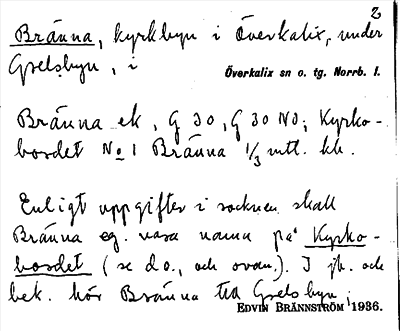 2
Bränna, kyrkbyn i Överkalix, under
Grelsbyn, i
Överkalix sn o. tg. Norrb. l.
Bränna ek, G 30, G 30 NO; Kyrko-
bordet No 1 Bränna 1/3 mtl. kh.
Enligt uppgifter i socknen skall
Bränna eg. vara namn på Kyrko-
bordet (se d.o., och ovan). I jb. och
bek. hör Bränna till Grelsbyn;
EDVIN BRÄNNSTRÖM 1936.